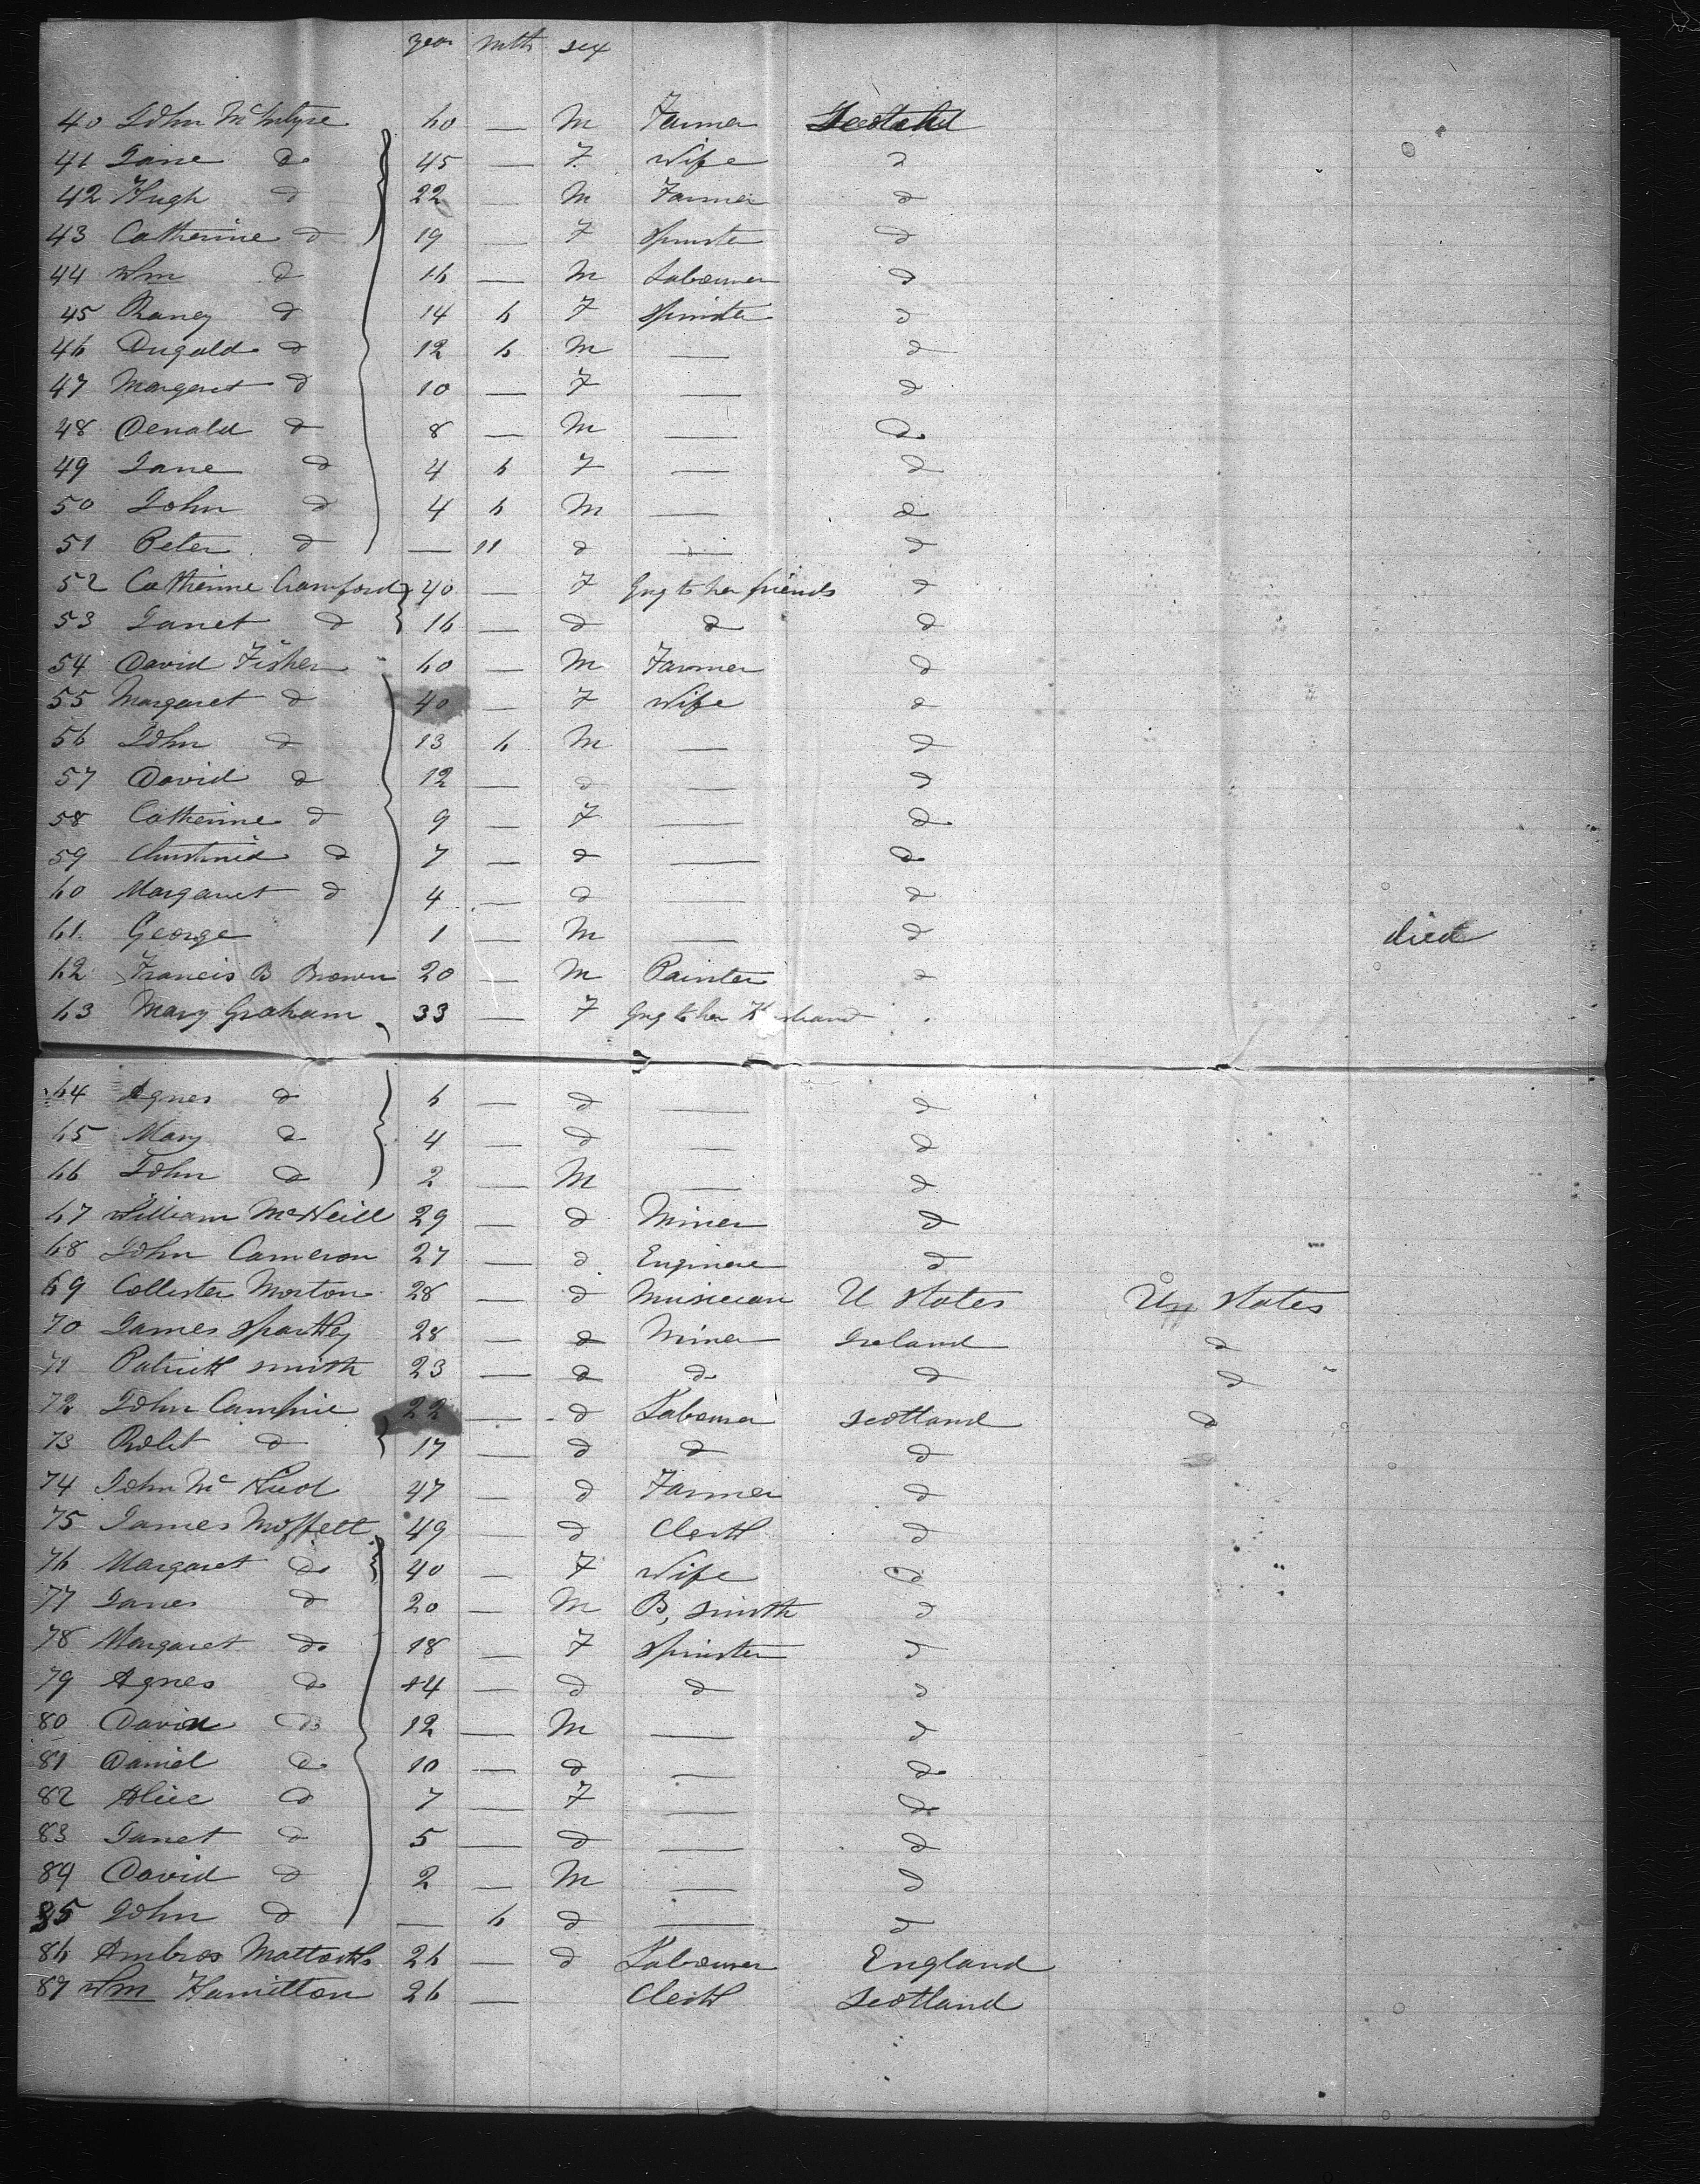 year mth sex
40 John McIntyre 60 — M Farmer Scotland
41 Jane do 45 — F Wife d
42 Hugh d 22 — M Farmer d
43 Catherine d 19 — F Spinster d
44 Wm d 16 — M Labourer d
45 d 14 6 F Spinster d
46 Dugald d 12 6 M — d
47 Margaret d 10 — F — d
48 Donald d 8 — M — Do
49 Jane d 4 6 F — d
50 John d 4 6 M — d
51 Peter d — 11 d — d
52 Catherine Crawford 40 — F Gng to her friends d
53 Janet d 16 — d d d
54 David Fisher 60 — M Farmer d
55 Margaret d 40 — F Wife d
56 John d 13 6 M — d
57 David d 12 — d — d
58 Catherine d 9 — F — d
59 d 7 — d — do
60 Margaret d 4 — d — d
61 George 1 — M — d died
62 Francis B Brown 20 — M Painter d
63 Mary Graham 33 — F Gng to her Husband
64 Agnes d 6 — d — d
65 Mary d 4 — d — d
66 John d 2 — M — d
67 William McNeill 29 — d Miner d
68 John Cameron 27 — d Engineer d
69 Collister Morton 28 — d Musician U States States
70 James 28 — d Miner Ireland d
71 Patrick Smith 23 — d do d d
72 John 22 — d Labourer Scotland d
73 Robt d 17 — d d d
74 John Mc 47 — d Farmer d
75 James Moffett 49 — d Clerk d
76 Margaret do 40 — F Wife d
77 James d 20 — M B, Smith d
78 Margaret do 18 — F Spinster d
79 Agnes do 14 — d d d
80 David do 12 — M — d
81 Daniel do 10 — d — do
82 Alice d 7 — F — do
83 Janet d 5 — d — d
84 David d 2 — M — d
85 John d — 6 d — d
86 Ambros 26 — d Labourer England
87 Wm Hamilton 26 — Clerk Scotland